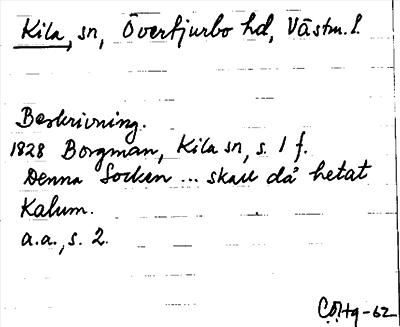 Kila, sn, Övertjurbo hd, Västm. l.
Beskrivning.
1828 Borgman, Kila sn, s. 1 f.
Denna Socken ... skall då hetat
Kalum.
a.a., s. 2.